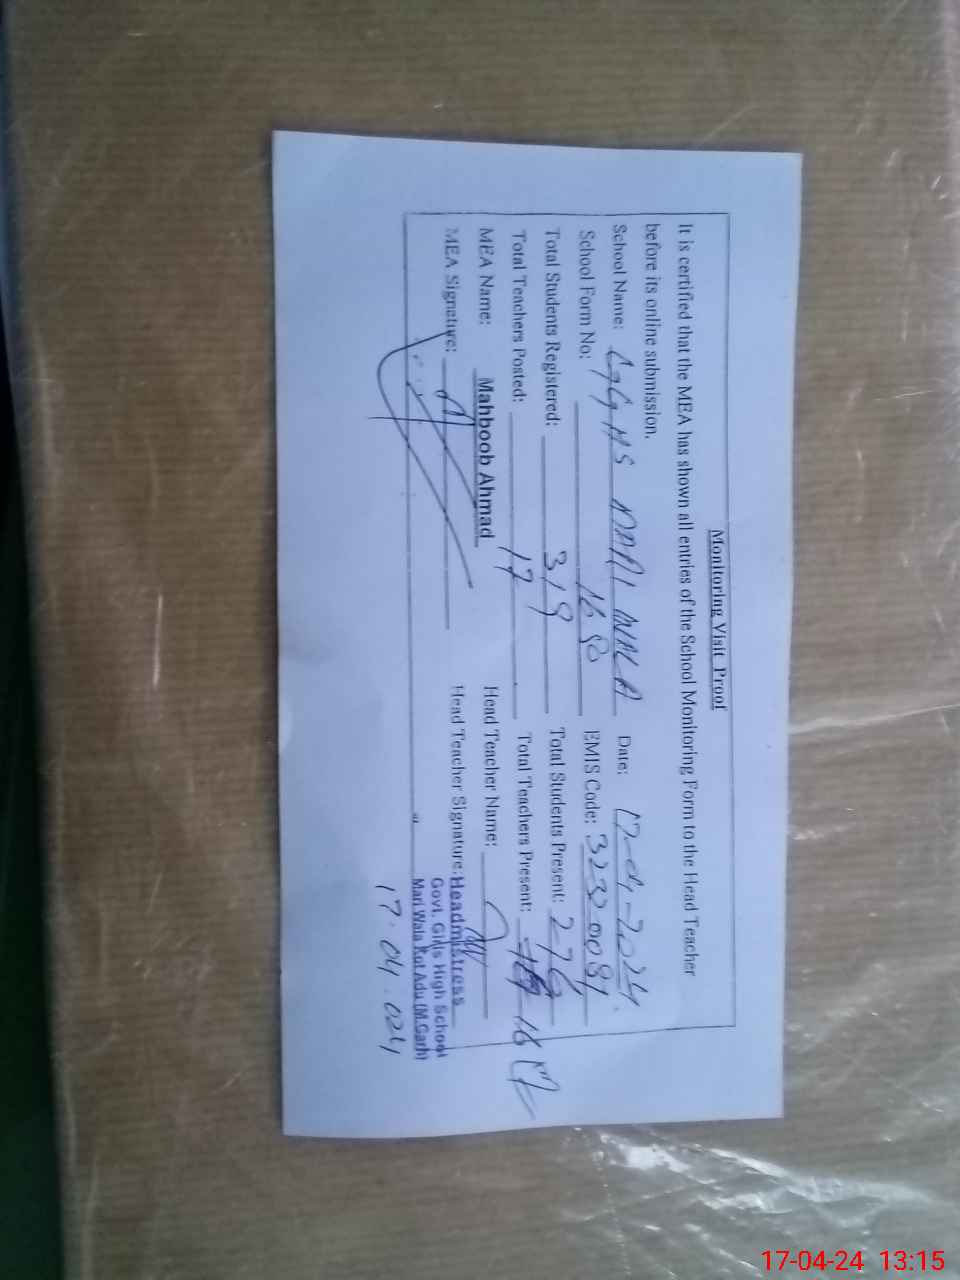 Monitoring Visit Proof
It is certified that the MEA has shown all entries of the School Monitoring Form to the Head Teacher
before its online submission.
School Name: GGHS MARI WALA Date: 17-04-2024.
School Form No: EMIS Code: 32320081
Total Students Registered: 319 Total Students Present: 276
Total Teachers Posted: 17 Total Teachers Present: 16
MEA Name: Mahboob Ahmad Head Teacher Name:
MEA Signature: Head Teacher Signature: Headmistress
Govt. Girls High School
Mari Wala Kot Adu (M.Garh)
17.04.024
17-04-24 13:15